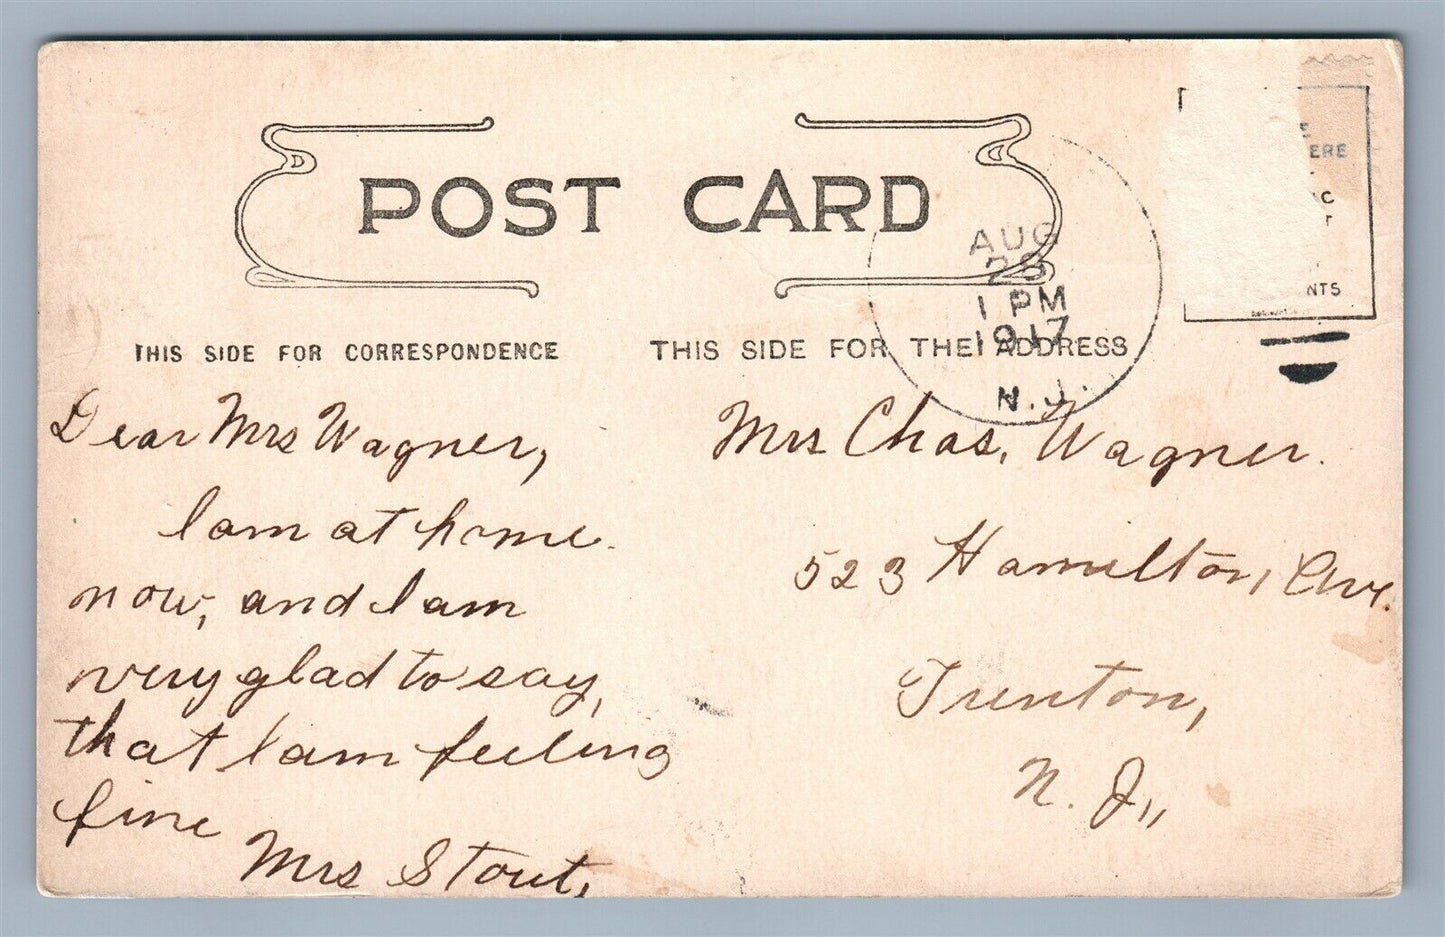 POST CARD
THIS SIDE FOR CORRESPONDENCE
THIS SIDE FOR THE ADDRESS
AUG
28
1 PM
1917
N.J.
ERE
NTS
Dear Mrs Wagner,
I am at home.
now, and I am
very glad to say,
that I am feeling
fine
Mrs Stout,
Mrs Chas. Wagner.
523 Hamilton, Ave.
Trenton,
N. J.,,